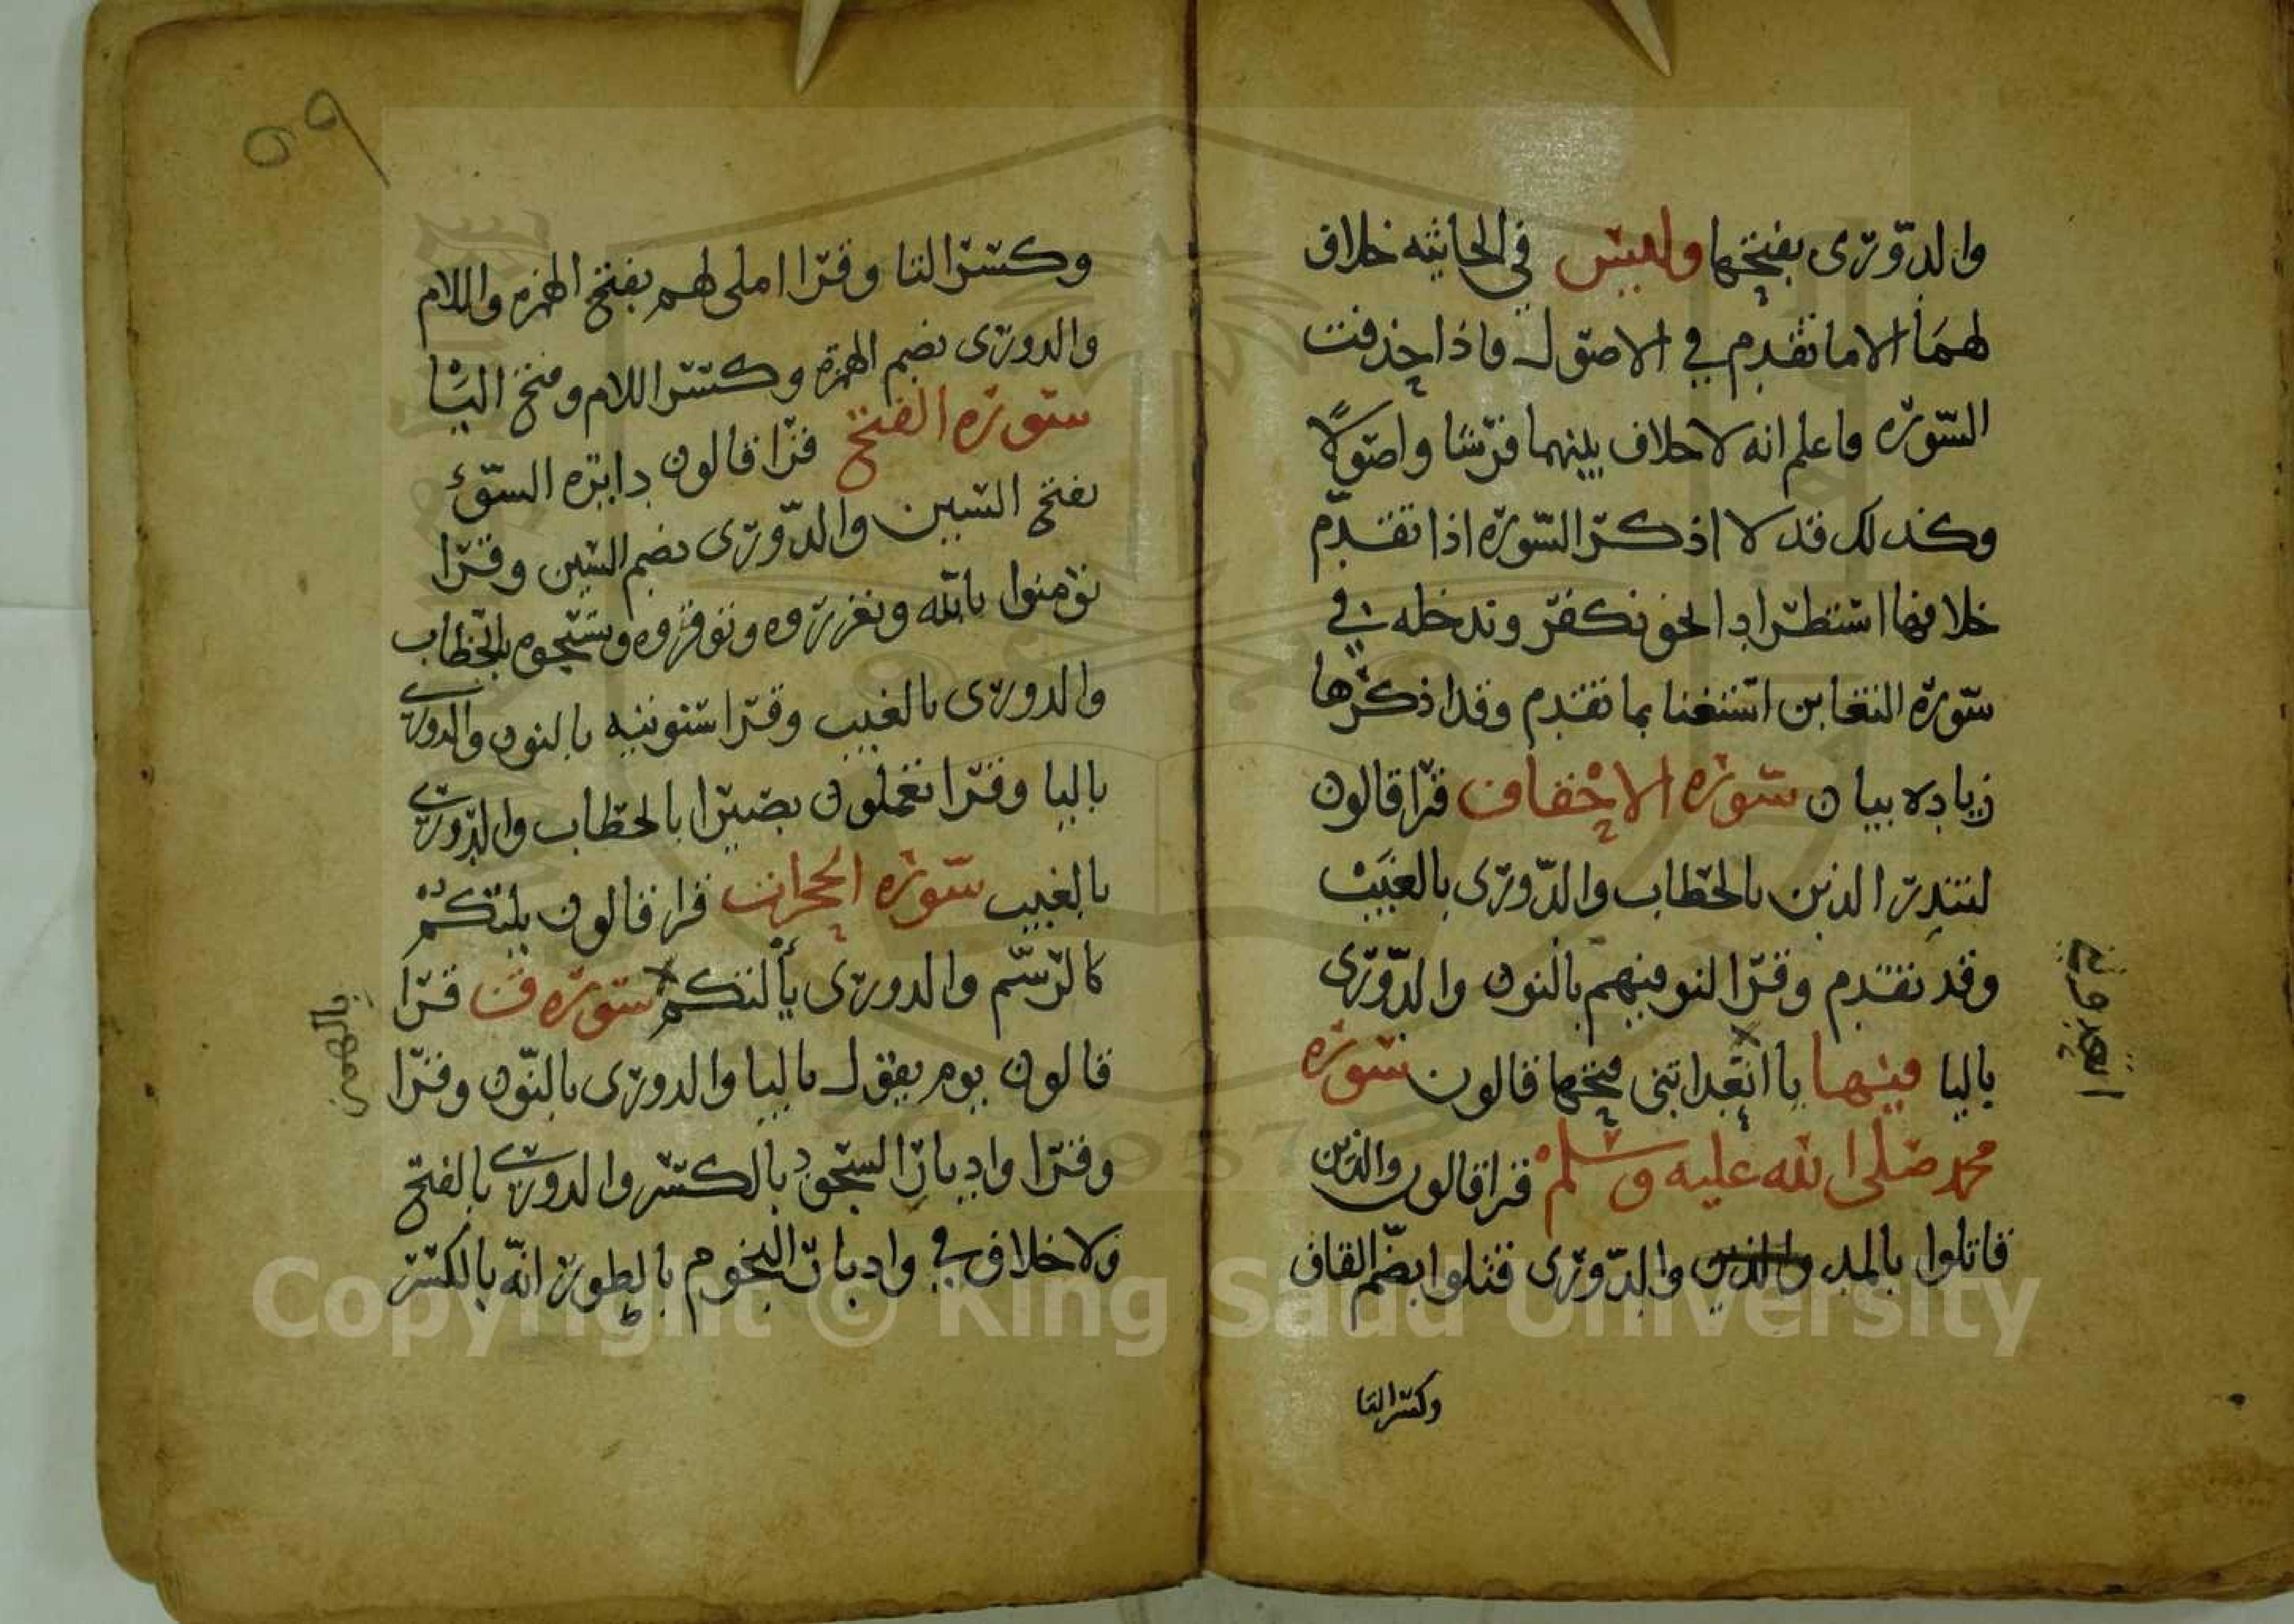 والدوري بفتحها وليس في الجاثيه خلاف
لهما الا ما تقدم في الاصول فاذا حذفت
السوره فاعلم انه لا خلاف بينهما فرشا واصولًا
وكذلك قد لا اذكر السوره اذا تقدم
خلافها استطرادا نحو نكفر وندخله في
سورة التغابن استغنا بما تقدم وقد اذكرها
زياده بيان سورة الاحقاف قرا قالون
لتنذر الذين بالخطاب والدوري بالغيب
وقد تقدم وقرا لنوفيهم بالنون والدوري
باليا فيها يا اتعداني فتحها قالون سورة
محمد صلى الله عليه وسلم قرا قالون والذين
قاتلوا بالمد والذين والدوري قتلوا بضم القاف
وكسر التا
٥٩
وكسر التا وقرا املى لهم بفتح الهمزه واللام
والدوري بضم الهمزه وكسر اللام وفتح اليا
سورة الفتح قرا قالون دايرة السوء
بفتح السين والدوري بضم السين وقرا
تؤمنوا بالله وتعزروه وتوقروه وتسبحوه بالخطاب
والدوري بالغيب وقرا سنوتيه بالنون والدوري
باليا وقرا تعملون بصيرا بالخطاب والدوري
بالغيب سورة الحجرات قرا قالون يلتكم
كالرسم والدوري يألتكم سورة ق قرا
قالون يوم يقول باليا والدوري بالنون وقرا
وقرا وادبار السجود بالكسر والدوري بالفتح
ولا خلاف في وادبار النجوم بالطور انه بالكسر
بالهمز
Copyright © King Saud University
1957